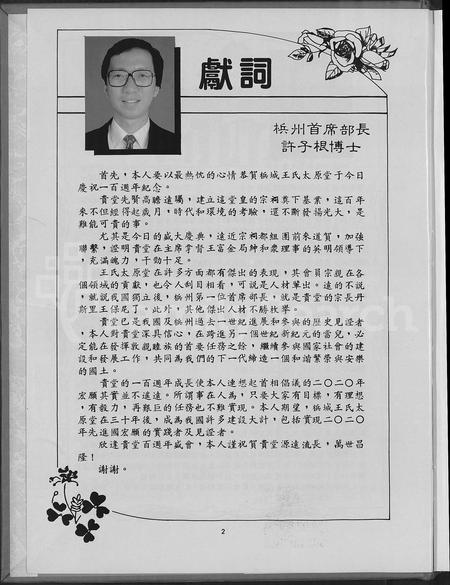 獻詞
檳州首席部長
許子根博士
首先，本人要以最熱忱的心情恭賀檳城王氏太原堂于今日
慶祝一百週年紀念。
貴堂先賢高瞻遠矚，建立這堂皇的宗祠奠下基業，這百年
來不但經得起歲月，時代和環境的考驗，還不斷發揚光大，是
難能可貴的事。
尤其是今日的盛大慶典，遠近宗祠都組團前來道賀，加強
聯繫，證明貴堂在主席拿督王富金局紳和眾理事的英明領導下
，充滿魄力，干勁十足。
王氏太原堂在許多方面都有傑出的表現，其會員宗親在各
個領域的貢獻，也令人刮目相看，可說是人材輩出。遠的不說
，就說我國獨立後，檳州第一位首席部長，就是貴堂的宗長丹
斯里王保尼了。此外，其他傑出人材不勝枚舉。
貴堂已是我國及檳州過去一世紀進展和參與的歷史見證者
，本人對貴堂深具信心，在跨進另一個世紀新紀元的當兒，必
定能在發揮敦親睦族的首要任務之餘，繼續參與國家社會的建
設和發展工作，共同為我們的下一代締造一個和諧繁榮與安樂
的國土。
貴堂的一百週年成長使本人連想起首相倡議的二〇二〇年
宏願其實並不遙遠。所謂事在人為，只要大家有目標，有理想
，有毅力，再艱巨的任務也不難實現。本人期望，檳城王氏太
原堂在三十年後，成為我國許多建設大計，包括實現二〇二〇
年先進國宏願的實踐者及見證者。
欣逢貴堂百週年盛會，本人謹祝賀貴堂源遠流長，萬世昌
隆！
謝謝。
2